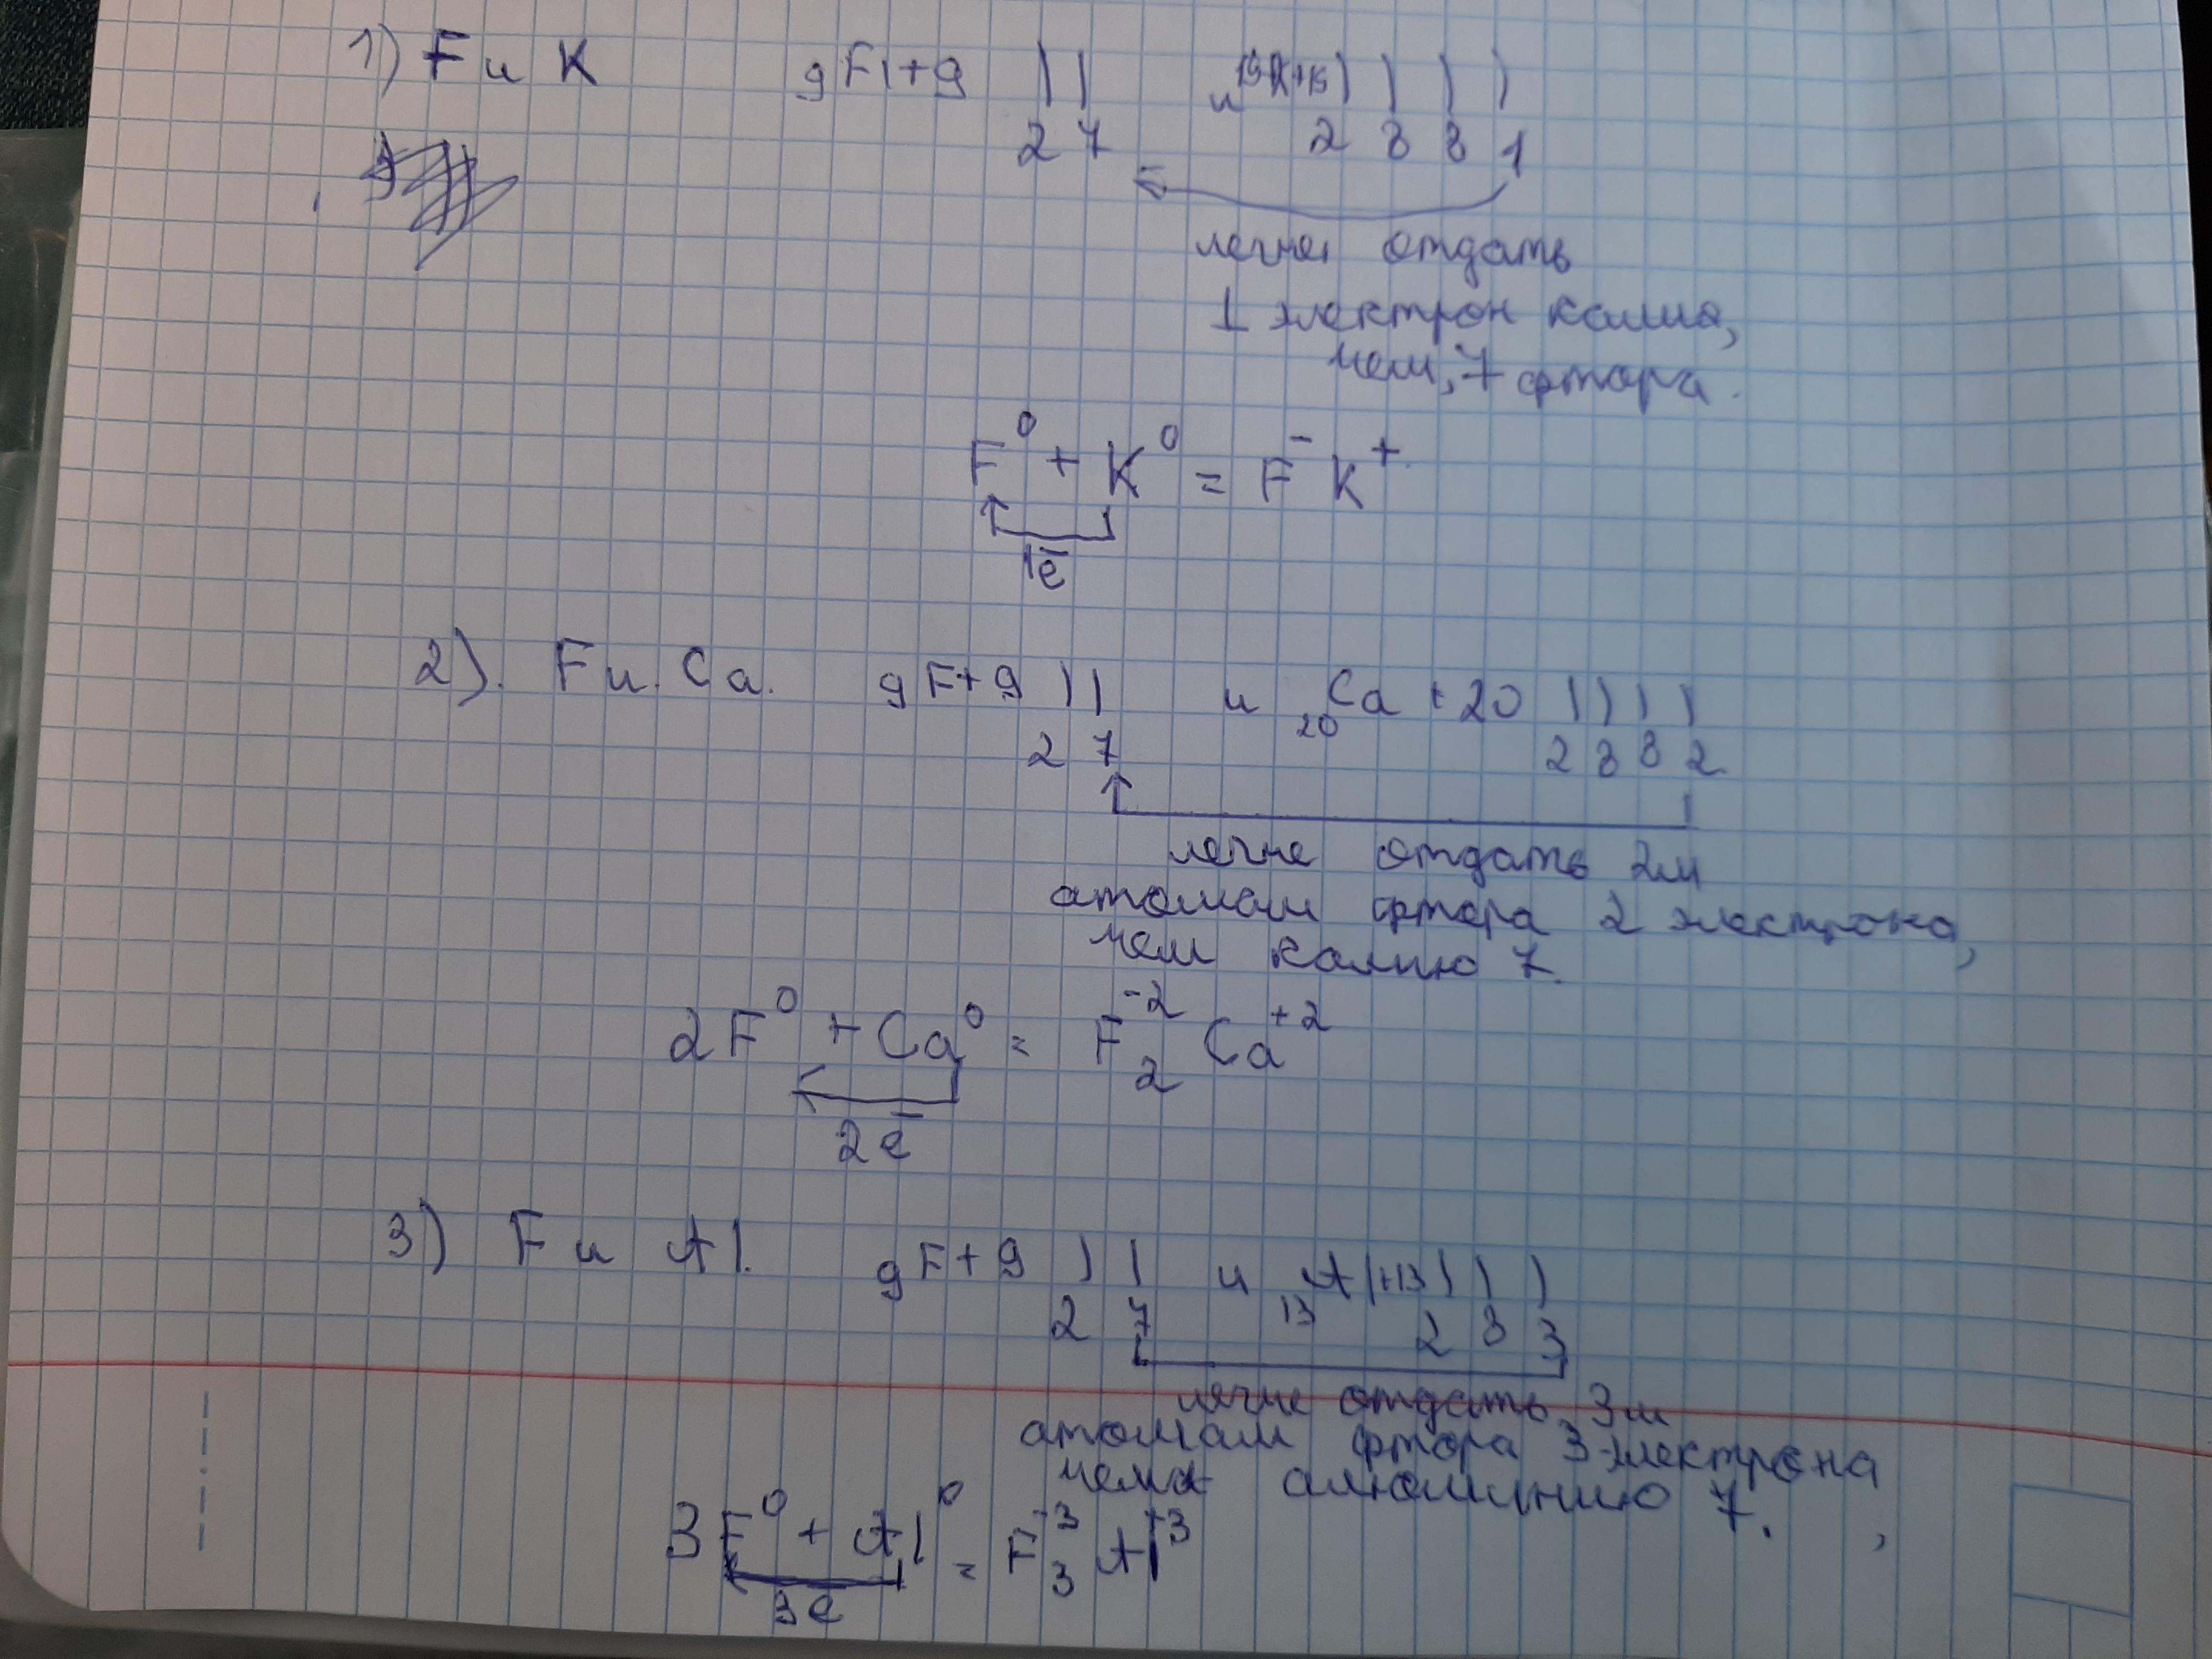 1) F и K 9F+9 ) ) и 19K+19 ) ) ) )
2 7 2 8 8 1
легче отдать
1 электрон калия,
чем, 7 фтора.
F⁰ + K⁰ = F⁻ K⁺
1e̅
2). F и Ca. 9F+9 ) ) и 20Ca +20 ) ) ) )
2 7 2 8 8 2
легче отдать 2м
атомам фтора 2 электрона,
чем калию 7.
2F⁰ + Ca⁰ = F₂⁻² Ca⁺²
2e̅
3) F и Al. 9F+9 ) ) и 13Al+13 ) ) )
2 7 2 8 3
легче отдать 3м
атомам фтора 3 электрона
чем алюминию 7.
3F⁰ + Al⁰ = F₃⁻³ Al⁺³
3e̅